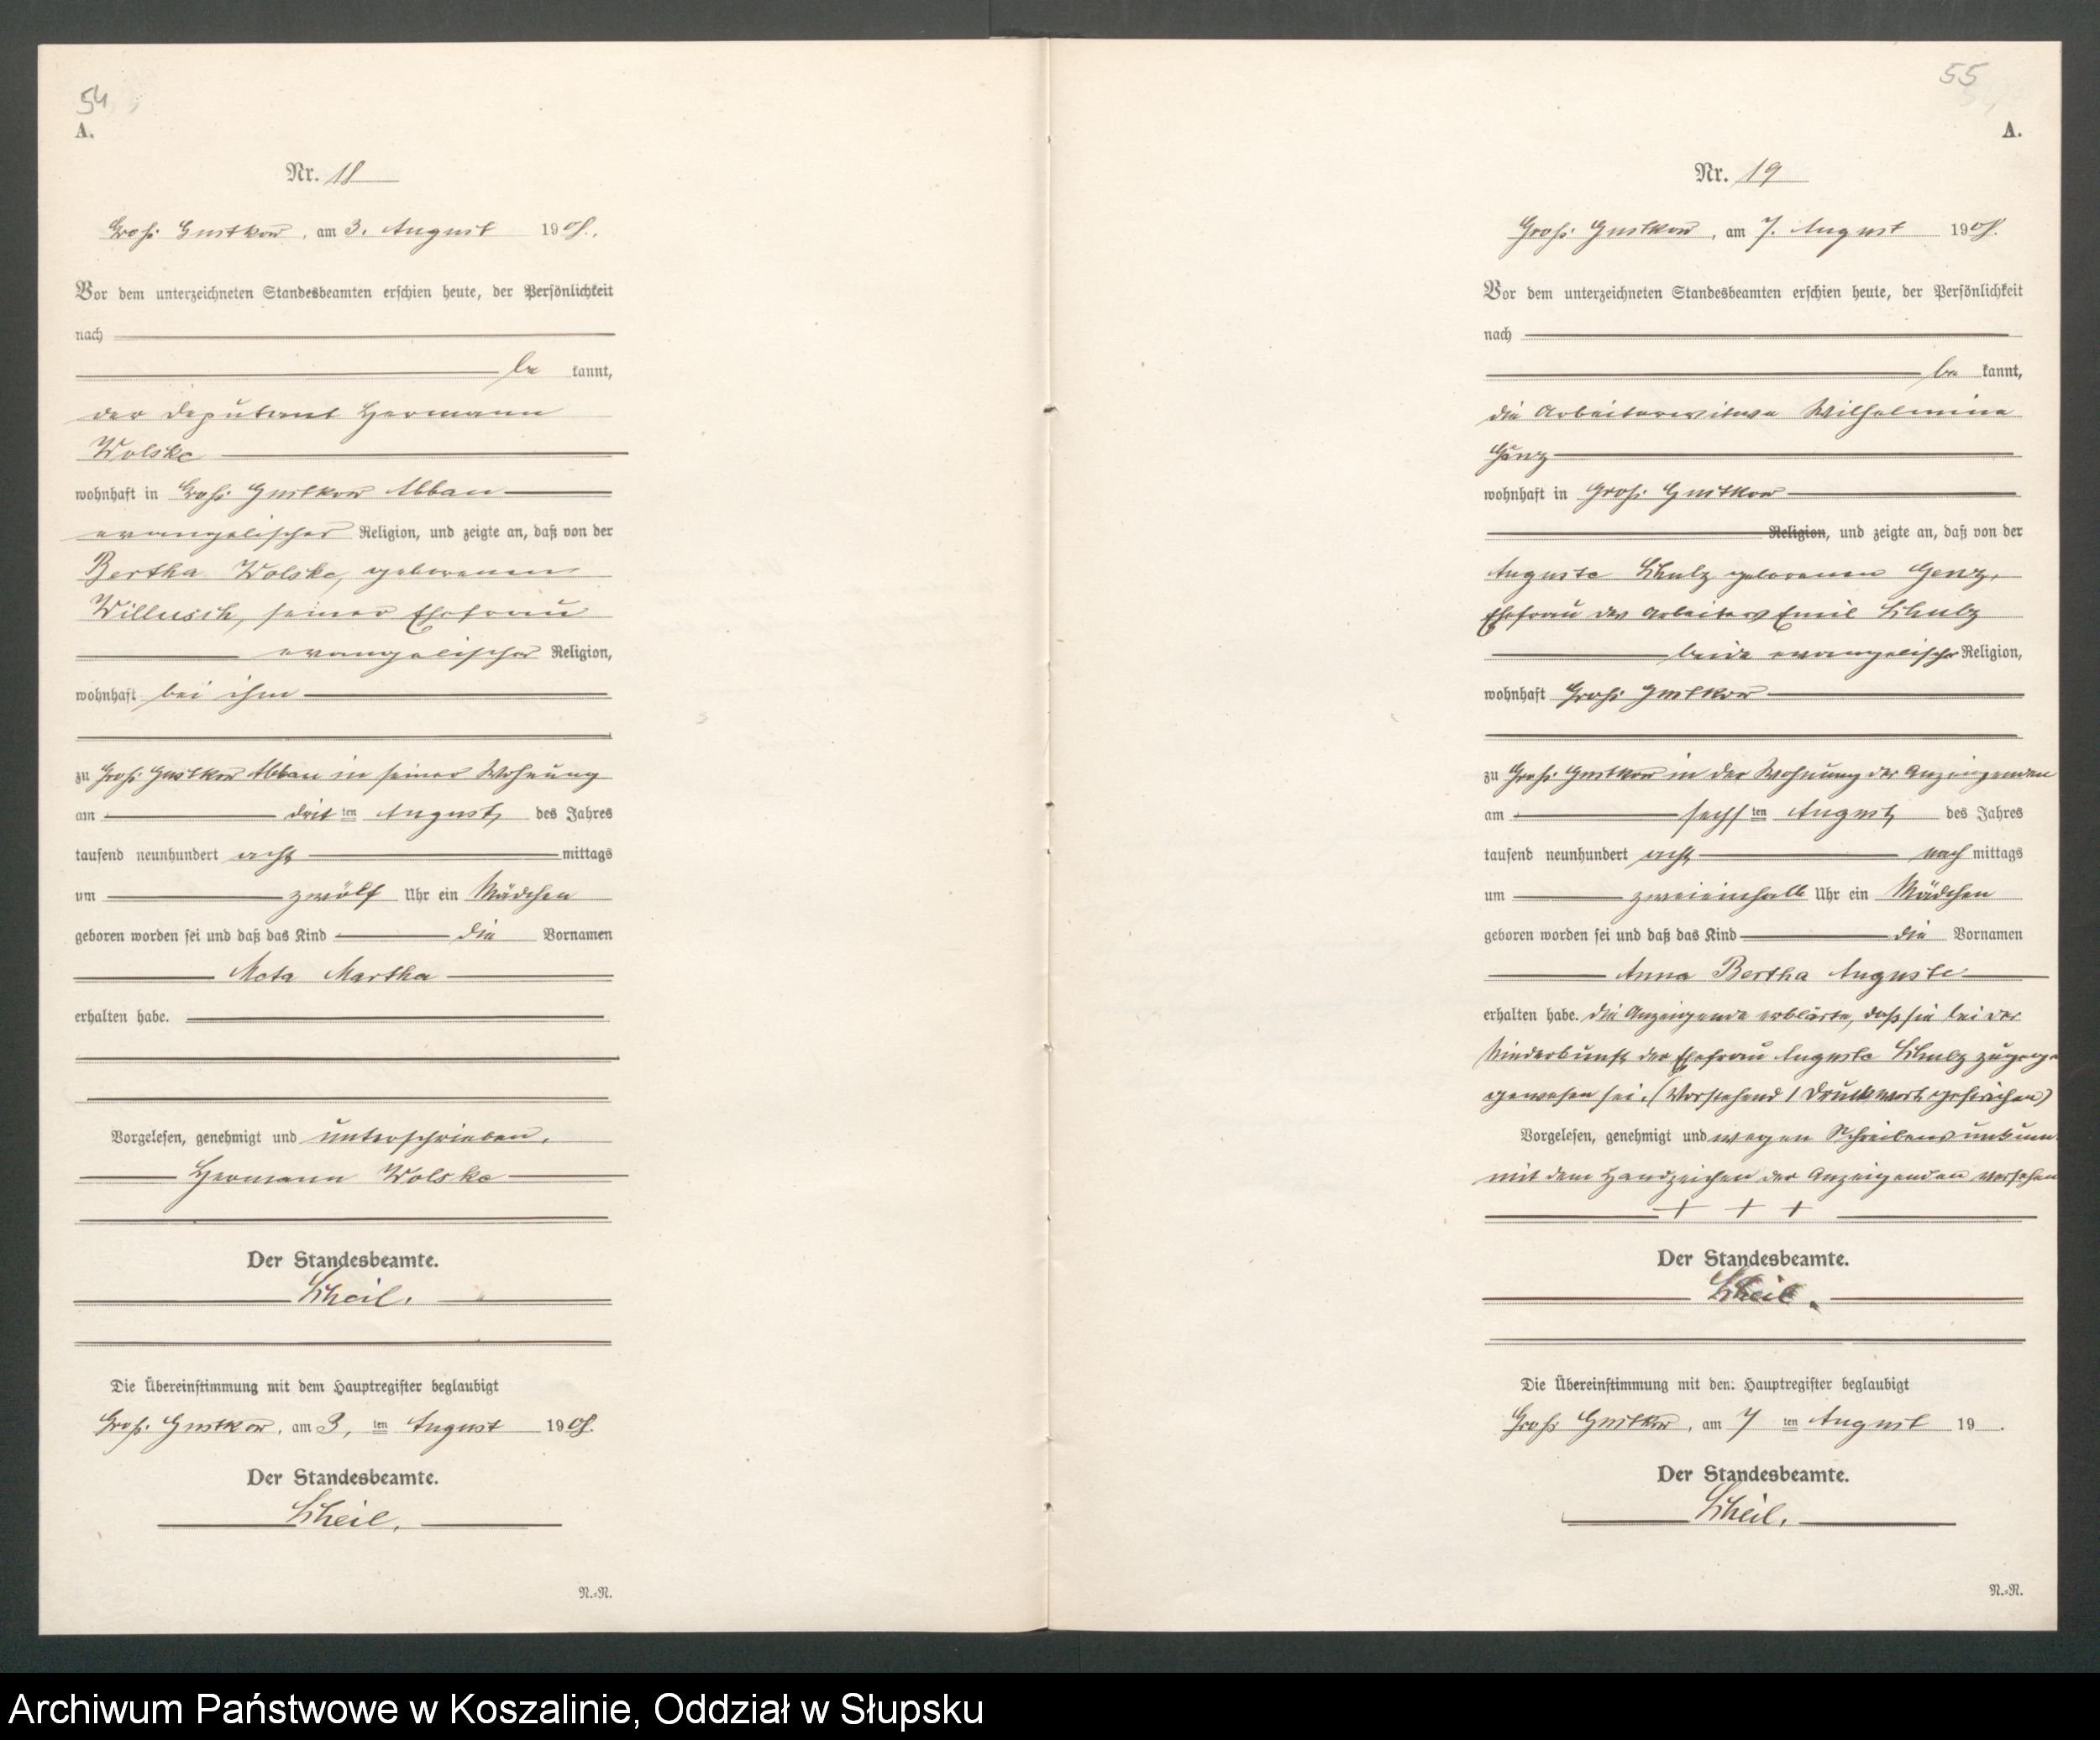 54
A.
Nr. 18
Groß Gustkow, am 3. August 1908.
Vor dem unterzeichneten Standesbeamten erschien heute, der Persönlichkeit
nach
be kannt,
der Deputant Hermann
Wolske
wohnhaft in Groß Gustkow Abbau
evangelischer Religion, und zeigte an, daß von der
Bertha Wolske, geborenen
Willusch, seiner Ehefrau
evangelischer Religion,
wohnhaft bei ihm
zu Groß Gustkow Abbau in seiner Wohnung
am drit ten August, des Jahres
tausend neunhundert acht mittags
um zwölf Uhr ein Mädchen
geboren worden sei und daß das Kind die Vornamen
Meta Martha
erhalten habe.
Vorgelesen, genehmigt und unterschrieben.
Hermann Wolske
Der Standesbeamte.
Scheil.
Die Übereinstimmung mit dem Hauptregister beglaubigt
Groß Gustkow, am 3, ten August 1908.
Der Standesbeamte.
Scheil.
N.=N.
55
A.
Nr. 19
Groß Gustkow, am 7. August 1908.
Vor dem unterzeichneten Standesbeamten erschien heute, der Persönlichkeit
nach
be kannt,
die Arbeiterwitwe Wilhelmine
Gänz
wohnhaft in Groß Gustkow
Religion, und zeigte an, daß von der
Auguste Schulz geborenen Genz,
Ehefrau des Arbeiters Emil Schulz
beide evangelischer Religion,
wohnhaft Groß Gustkow
zu Groß Gustkow in der Wohnung der Anzeigenden
am sechs ten August, des Jahres
tausend neunhundert acht nach mittags
um zweieinhalb Uhr ein Mädchen
geboren worden sei und daß das Kind die Vornamen
Anna Bertha Auguste
erhalten habe. Die Anzeigende erklärte, daß sie bei der
Niederkunft der Ehefrau Auguste Schulz zugege
gewesen sei. (Vorstehend 1 Druckwort gestrichen)
Vorgelesen, genehmigt und wegen Schreibensunkun
mit dem Handzeichen der Anzeigenden versehen
+ + +
Der Standesbeamte.
Scheil.
Die Übereinstimmung mit dem Hauptregister beglaubigt
Groß Gustkow, am 7 ten August 19 .
Der Standesbeamte.
Scheil.
N.=N.
Archiwum Państwowe w Koszalinie, Oddział w Słupsku